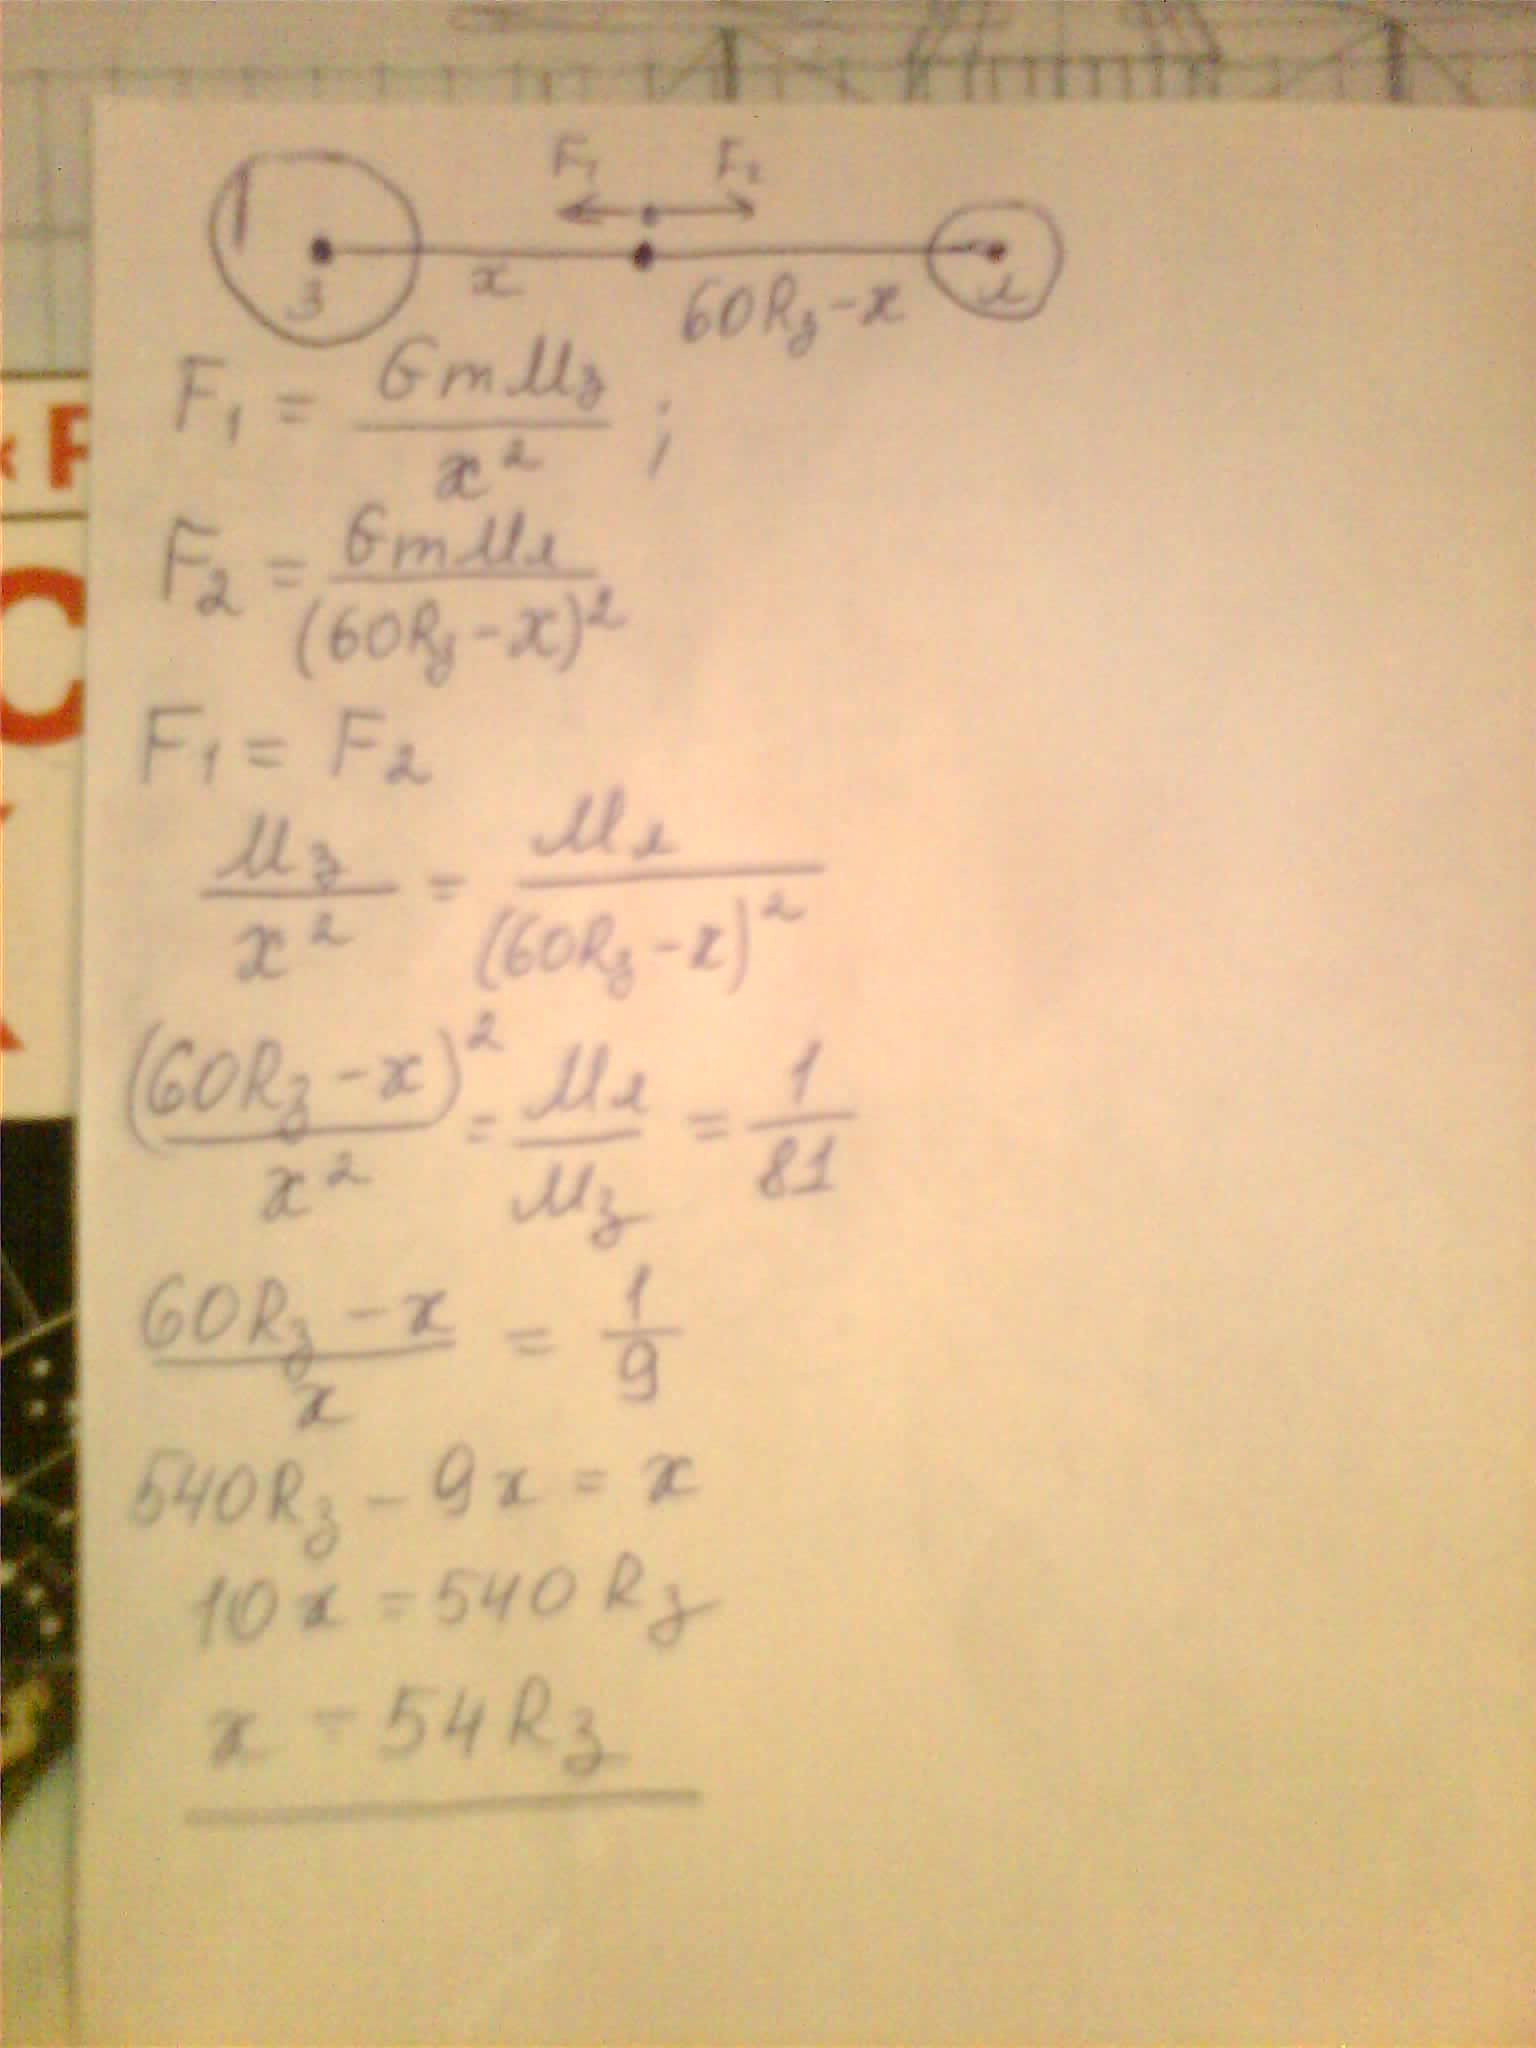 F₁ F₂
З x 60Rз-x л
F₁ = GmMз/x² ;
F₂ = GmMл/(60Rз-x)²
F₁ = F₂
Mз/x² = Mл/(60Rз-x)²
(60Rз-x)²/x² = Mл/Mз = 1/81
60Rз-x/x = 1/9
540Rз - 9x = x
10x = 540Rз
x = 54Rз